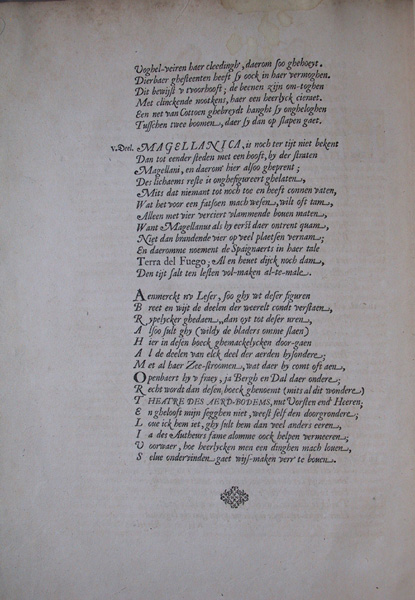 Voghel-veiren haer cleedingh, daerom soo ghehoeyt.
Dierbaer ghesteenten heeft sy oock in haer vermoghen.
Dit bewijst v tvoorhooft; de beenen zijn om-toghen
Met clinckende nootkens, haer een heerlyck cieraet.
Een net van Cottoen ghebreydt hanght sy ongheloghen
Tusschen twee boomen, daer sy dan op slapen gaet.
v. Deel. MAGELLANICA, is noch ter tijt niet bekent
Dan tot eender steden met een hooft, by der straten
Magellani, en daerom hier alsoo gheprent;
Des lichaems reste is onghefigureert ghelaten,
Mits dat niemant tot noch toe en heeft connen vaten,
Wat het voor een fatsoen mach wesen, wilt oft tam,
Alleen met vier verciert vlammende bouen maten,
Want Magellanus als hy eerst daer ontrent quam,
Niet dan brandende vier op veel plaetsen vernam;
En daeromme noement de Spaignaerts in haer tale
Terra del Fuego; Al en heuet dijck noch dam,
Den tijt salt ten lesten vol-maken al-te-male.
Aenmerckt nv Leser, soo ghy wt deser figuren
Breet en wijt de deelen der weerelt condt verstaen,
Rypelycker ghedaen, dan oyt tot deser uren,
Alsoo sult ghy (wildy de bladers omme slaen)
Hier in desen boeck ghemackelycken door-gaen
Al de deelen van elck deel der aerden bysondere;
Met al haer Zee-stroomen, wat daer by comt oft aen,
Openbaert hy v fraey, ja Bergh en Dal daer ondere;
Recht wordt dan desen, boeck ghenoemt (mits al dit wondere)
THEATRE DES AERD-BODEMS, nut Vorsten end' Heeren;
En ghelooft mijn segghen niet, weest self den doorgrondere;
Loue ick hem iet, ghy sult hem dan veel anders eeren,
Ia des Autheurs fame alomme oock helpen vermeeren;
Voorwaer, hoe heerlycken men een dinghen mach louen,
Selue ondervinden gaet wijs-maken verr' te bouen.